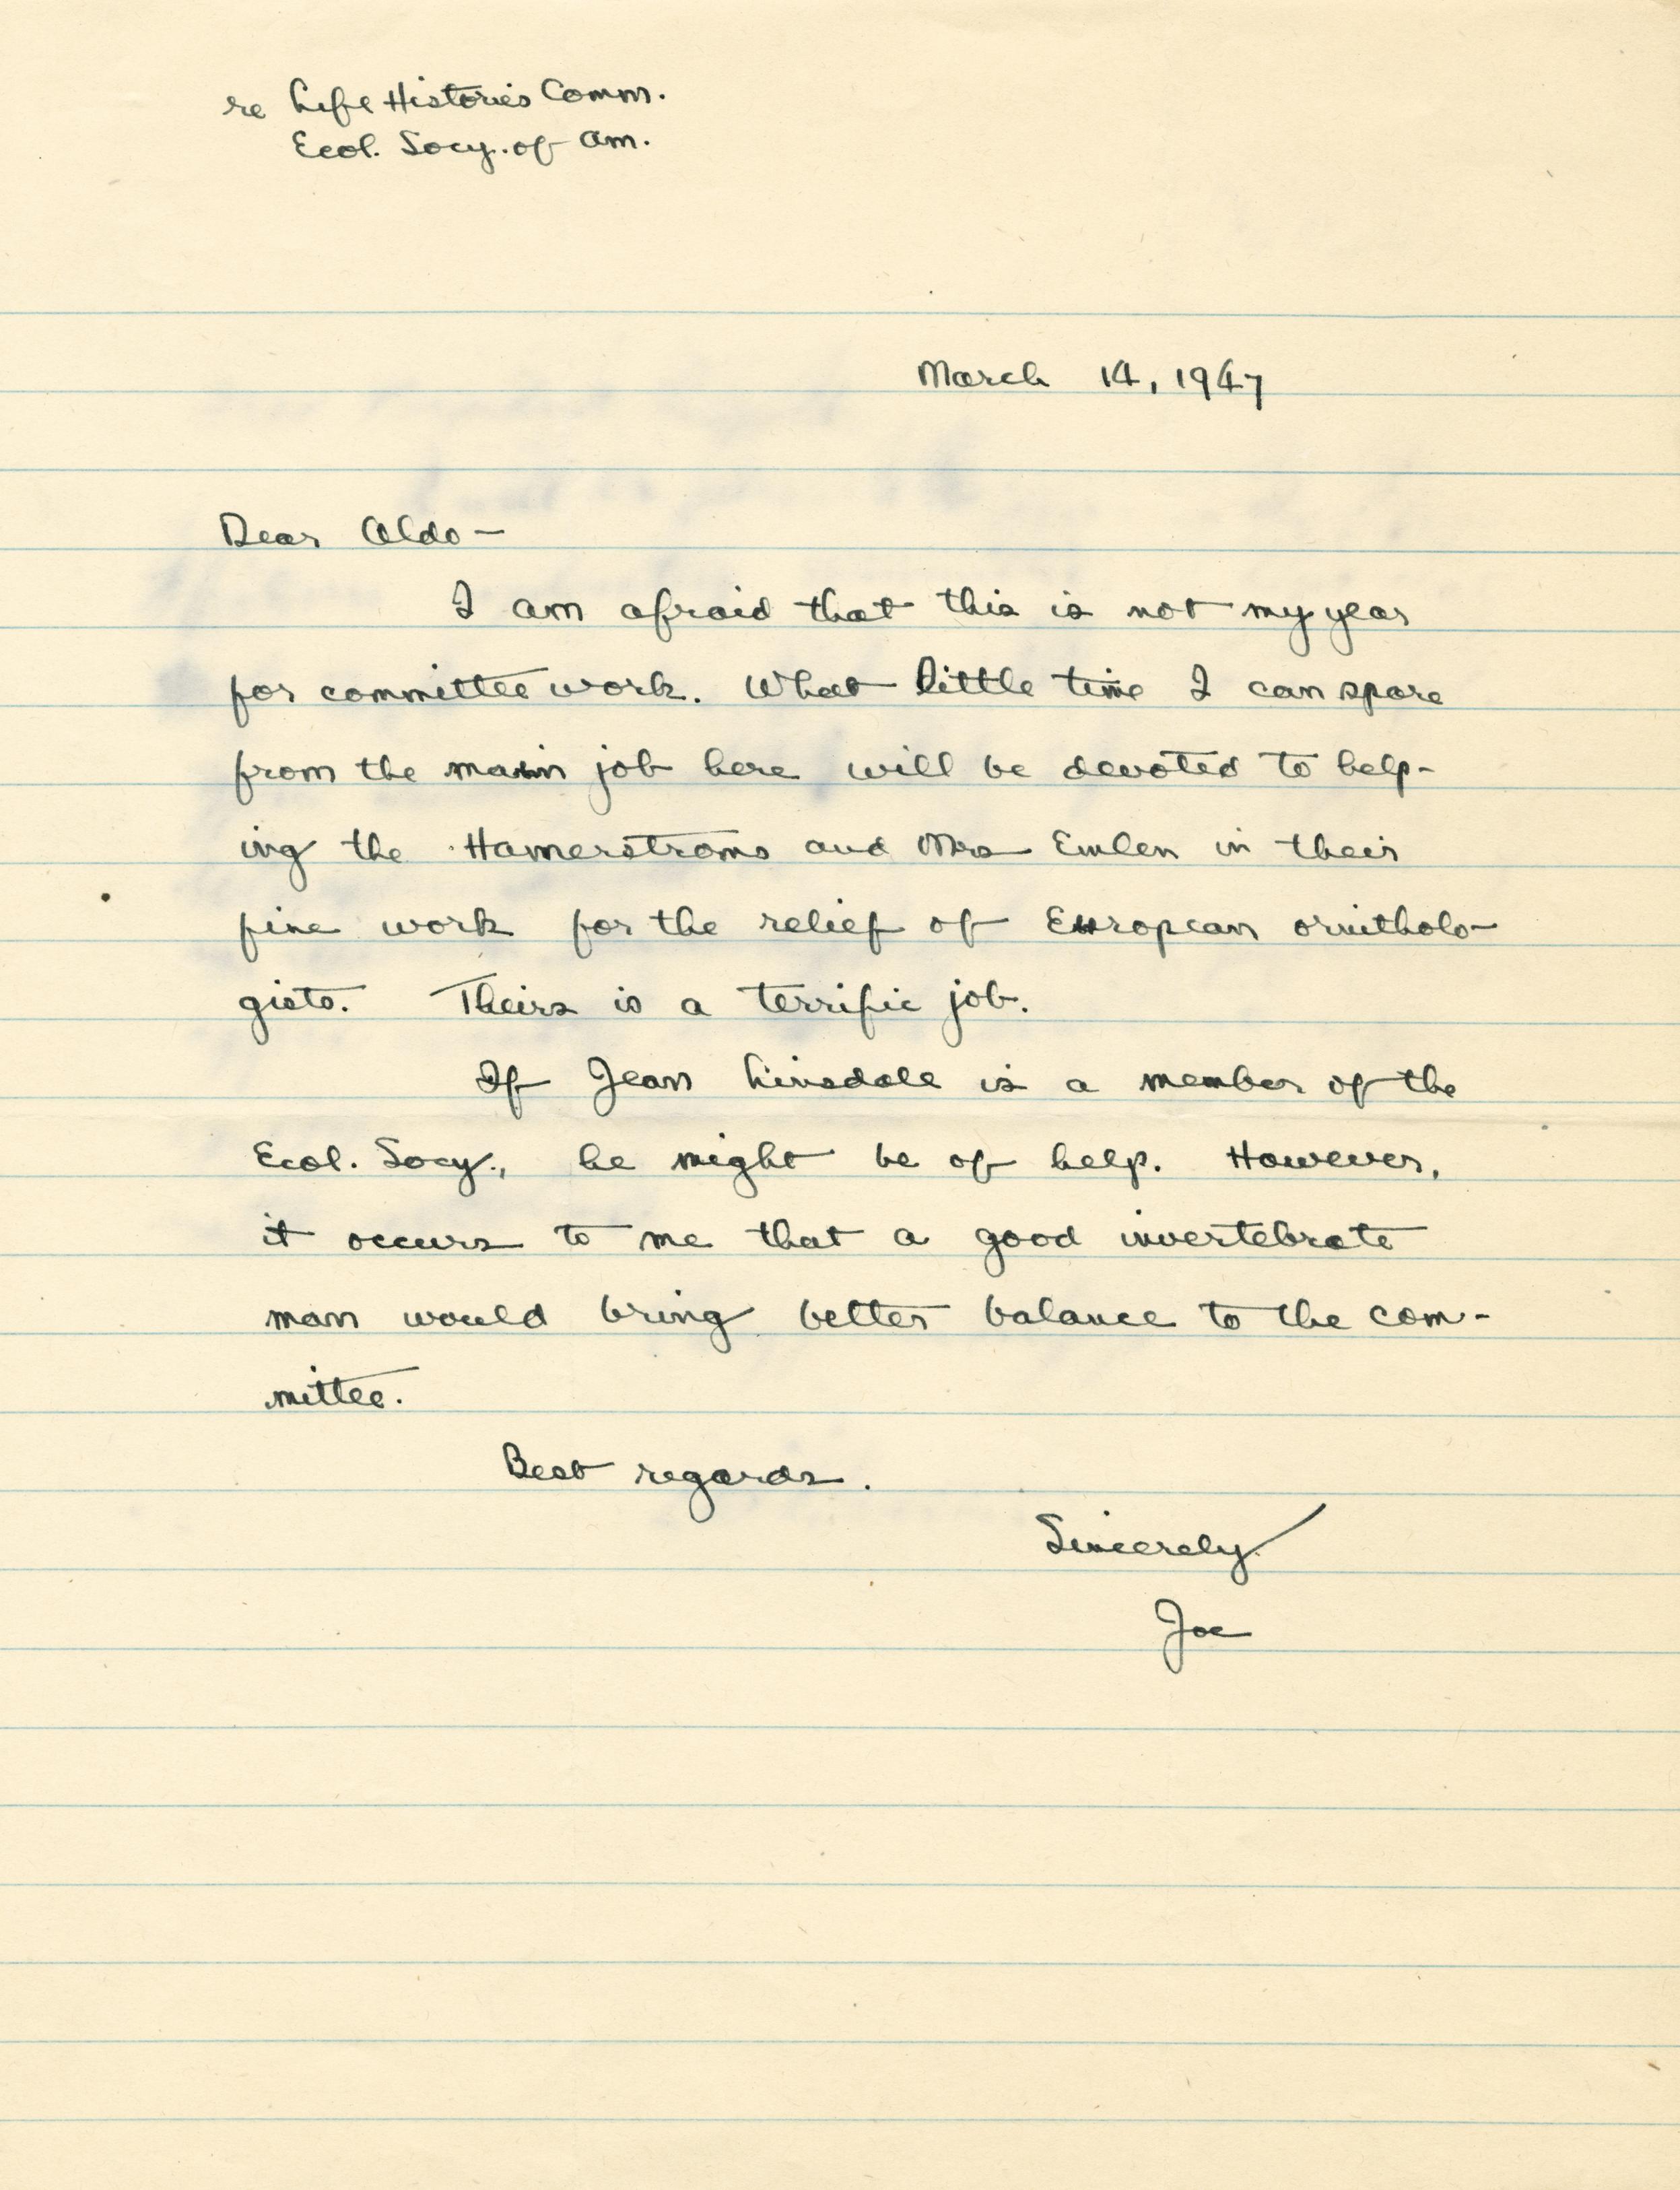 re Life Histories Comm.
Ecol. Socy. of Am.
March 14, 1947
Dear Aldo —
I am afraid that this is not my year
for committee work. What little time I can spare
from the main job here will be devoted to help-
ing the Hamerstroms and Mrs Emlen in their
fine work for the relief of European ornitholo-
gists. Theirs is a terrific job.
If Jean Linsdale is a member of the
Ecol. Socy., he might be of help. However,
it occurs to me that a good invertebrate
man would bring better balance to the com-
mittee.
Best regards.
Sincerely
Joe